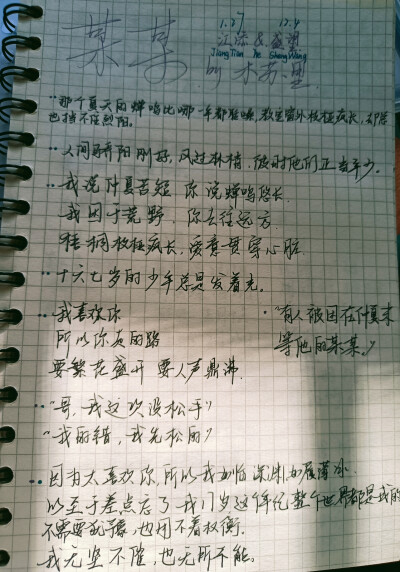 某某
1.27 12.4
江添&盛望
JiangTian Ye ShengWang
by 木苏里
"那个夏天的蝉鸣比哪一年都聒噪，教室窗外枝桠疯长，却总
也挡不住烈阳。
"人间骄阳刚好，风过林梢，彼时他们正当年少。
"我说仲夏苦短 你说蝉鸣悠长
我困于荒野，你去往远方
梧桐枝桠疯长，爱意贯穿心脏
"十六七岁的少年总是发着光。
"我喜欢你
所以你走的路
要繁花盛开 要人声鼎沸
"有人被困在仲夏末
等他的某某。"
"哥，我这次没松手"
"我的错，我先松的"
因为太喜欢你，所以我如临深渊，如履薄冰
以至于差点忘了 我们岁这年纪 整个世界都是我的
不需要犹豫，也用不着权衡，
我无坚不摧，也无所不能。